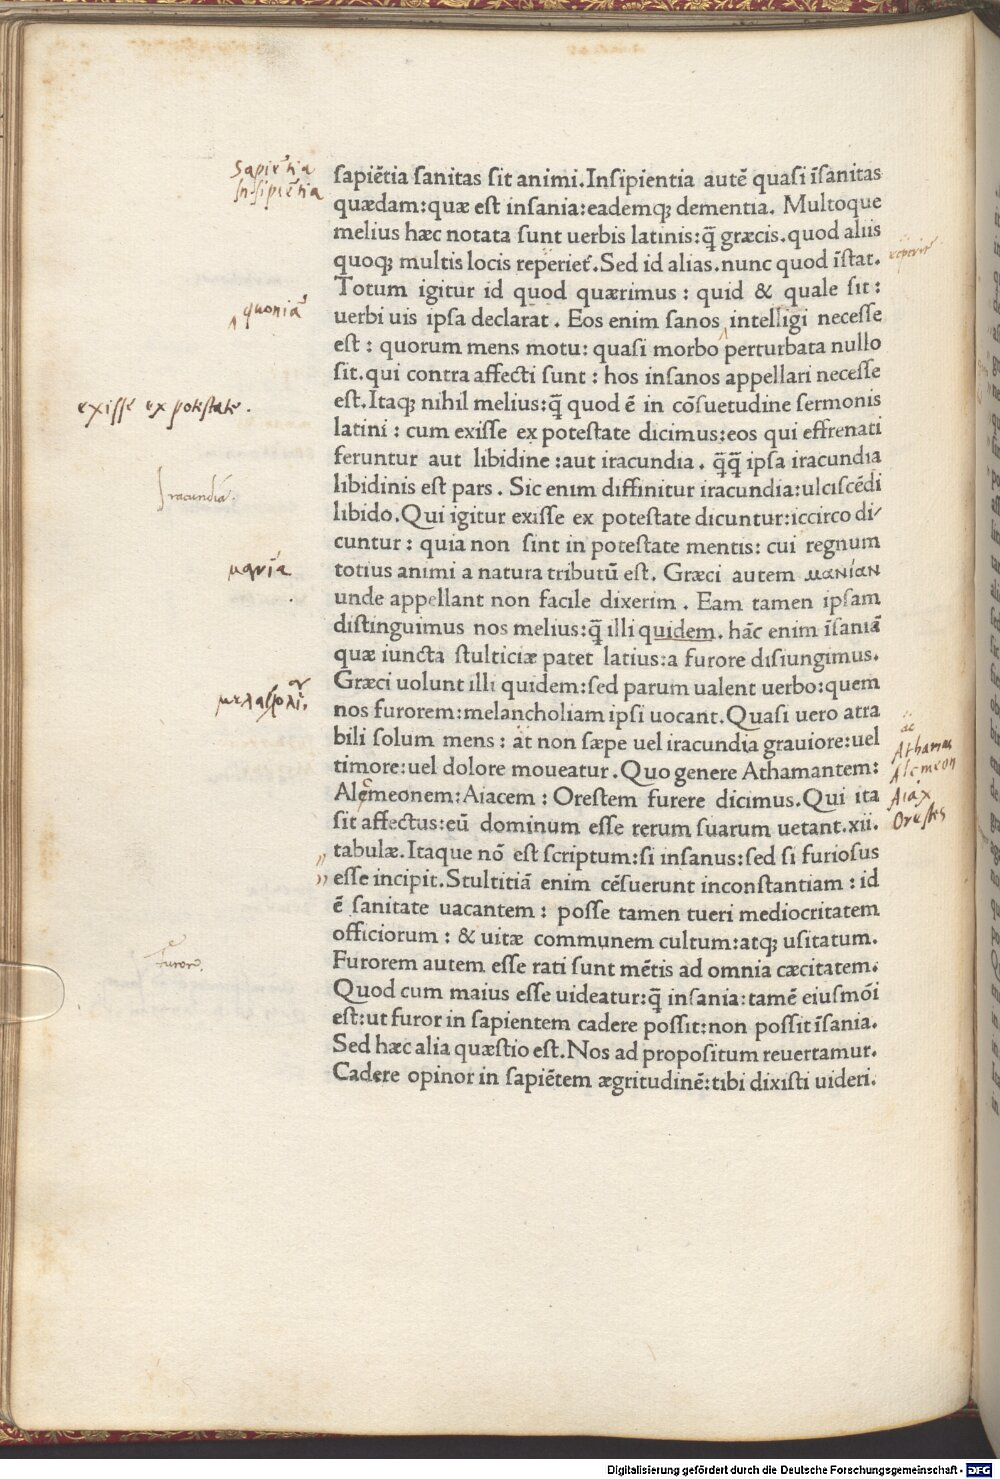 Sapiẽtia
Insipiẽtia
sapiẽtia sanitas sit animi.Insipientia autẽ quasi ĩsanitas
quædam:quæ est insania:eademq; dementia. Multoque
melius hæc notata sunt uerbis latinis:q̃ græcis.quod aliis
quoq; multis locis reperiet̃.Sed id alias.nunc quod ĩstat.
Totum igitur id quod quærimus : quid & quale sit :
quoniã
uerbi uis ipsa declarat . Eos enim sanos intelligi necesse
est : quorum mens motu: quasi morbo perturbata nullo
sit.qui contra affecti sunt : hos insanos appellari necesse
exisse ex potestate.
est.Itaq; nihil melius:q̃ quod ẽ in cõsuetudine sermonis
latini : cum exisse ex potestate dicimus:eos qui effrenati
feruntur aut libidine :aut iracundia . q̃q̃ ipsa iracundia
Iracundia.
libidinis est pars . Sic enim diffinitur iracundia:ulciscẽdi
libido.Qui igitur exisse ex potestate dicuntur:iccirco di/
cuntur : quia non sint in potestate mentis: cui regnum
μανία
totius animi a natura tributũ est. Græci autem μανίαν
unde appellant non facile dixerim . Eam tamen ipsam
distinguimus nos melius:q̃ illi quidem. hãc enim ĩsaniã
quæ iuncta stulticiæ patet latius:a furore disiungimus.
Græci uolunt illi quidem:sed parum ualent uerbo:quem
nos furorem:melancholiam ipsi uocant.Quasi uero atra
bili solum mens : at non sæpe uel iracundia grauiore:uel
timore:uel dolore moueatur .Quo genere Athamantem:
Athamas
Alcmeon
Aiax
Orestes
Alcmeonem:Aiacem : Orestem furere dicimus.Qui ita
sit affectus:eũ dominum esse rerum suarum uetant.xii.
tabulæ.Itaque nõ est scriptum:si insanus:sed si furiosus
esse incipit.Stultitiã enim cẽsuerunt inconstantiam : id
ẽ sanitate uacantem : posse tamen tueri mediocritatem
officiorum : & uitæ communem cultum:atq; usitatum.
Furore.
Furorem autem esse rati sunt mẽtis ad omnia cæcitatem.
Quod cum maius esse uideatur:q̃ insania:tamẽ eiusmõi
est:ut furor in sapientem cadere possit:non possit ĩsania.
Sed hæc alia quæstio est.Nos ad propositum reuertamur.
Cadere opinor in sapiẽtem ægritudinẽ:tibi dixisti uideri.
Digitalisierung gefördert durch die Deutsche Forschungsgemeinschaft - DFG